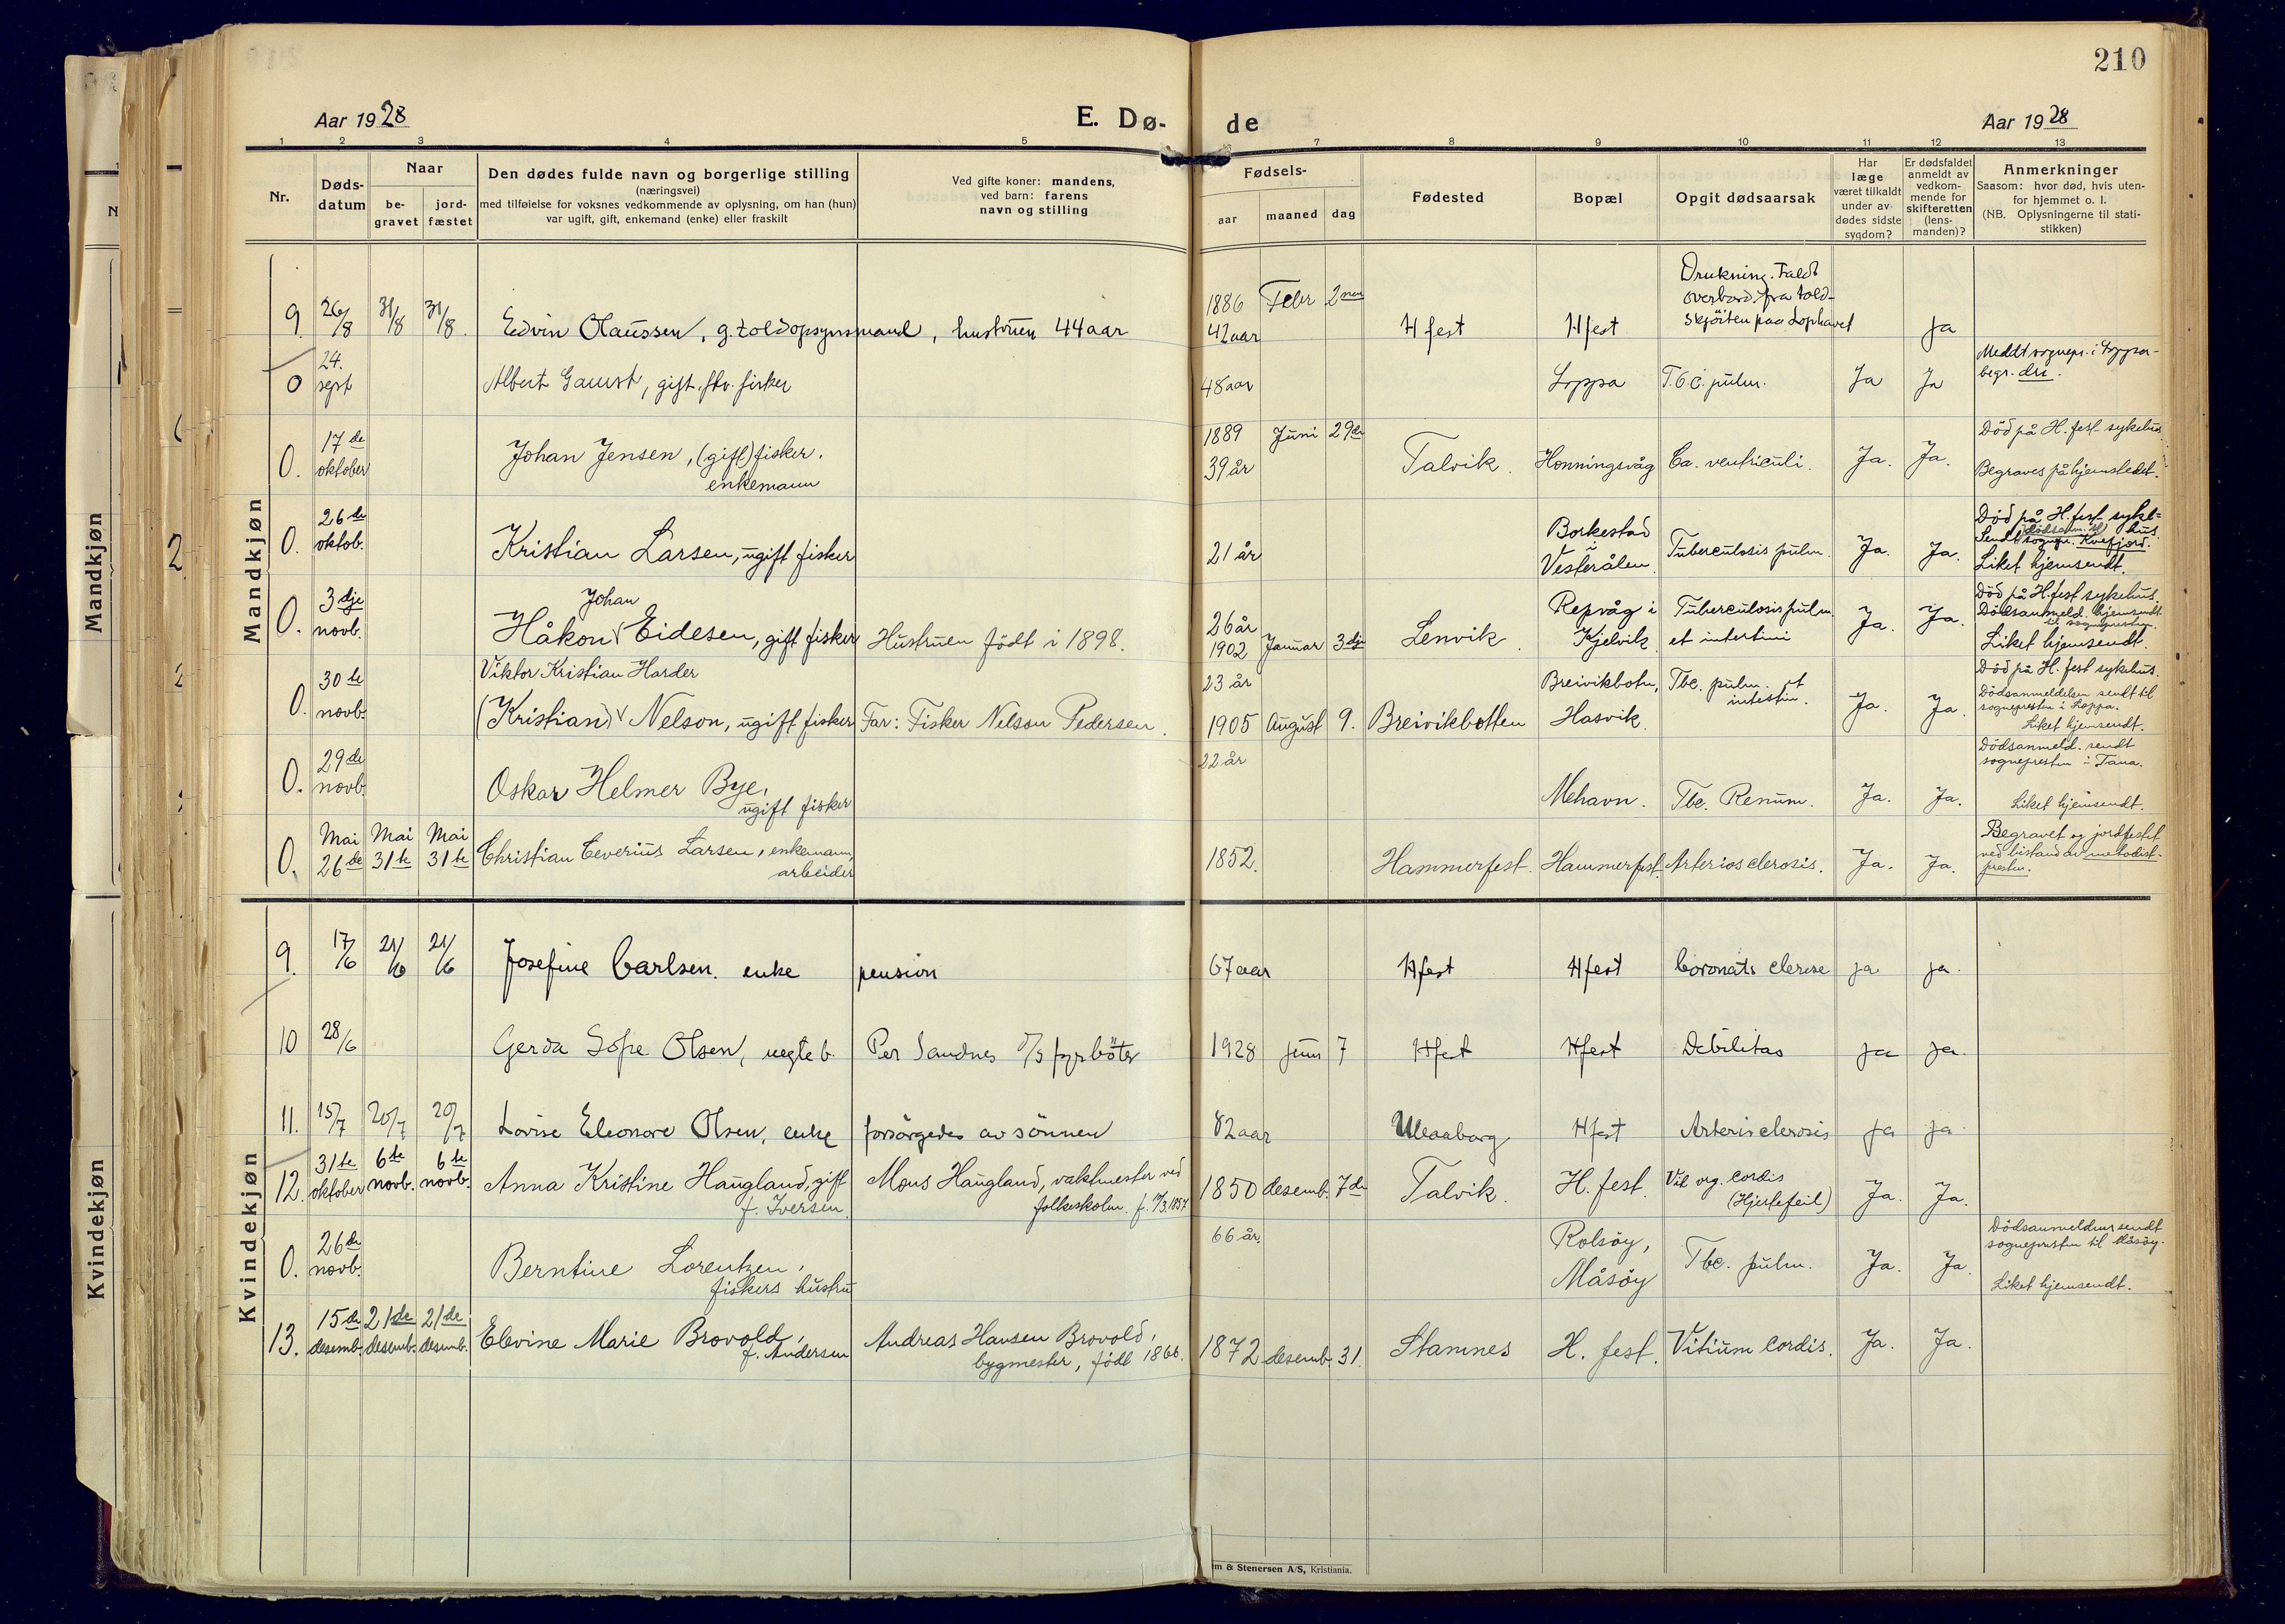 210
Aar 1928 E. Dø- de Aar 1928
1 2 3 4 5 7 8 9 10 11 12 13
Nr.
Døds-
datum
Naar
be-
gravet
jord-
fæstet
Den dødes fulde navn og borgerlige stilling
(næringsvei)
med tilføielse for voksnes vedkommende av oplysning, om han (hun)
var ugift, gift, enkemand (enke) eller fraskilt
Ved gifte koner: mandens,
ved barn: farens
navn og stilling
Fødsels-
aar maaned dag
Fødested
Bopæl
Opgit dødsaarsak
Har
læge
været tilkaldt
under av-
dødes sidste
sygdom?
Er dødsfaldet
anmeldt av
vedkom-
mende for
skifteretten
(lens-
manden)?
Anmerkninger
Saasom: hvor død, hvis uten-
for hjemmet o. l.
(NB. Oplysningerne til stati-
stikken)
Mandkjøn
Mandkjøn
9. 26/8 31/8 31/8. Edvin Olaussen, g. toldopsynsmand, hustruen 44 aar
1886 Febr 2nen
42 aar
Hfest Hfest
Drukning. Faldt
overbord fra told-
skjöiten paa Lophavet
ja
0 24.
sept
Albert Gamst, gift, fhv. fisker
48 aar Loppa T.b.c. pulm. Ja Ja
Meddt sognepr. i Loppa-
begr. der.
0. 17de
oktober
Johan Jensen, (gift) fisker.
enkemann
1889 Juni 29de
39 år
Talvik. Honningsvåg Ca. ventriculi. Ja. Ja.
Död på H.fest sykehus.
Begraves på hjemstedet.
0. 26de
oktob.
Kristian Larsen, ugift fisker
21 år
Borkestad
i
Vesterålen
Tuberculosis pulm. Ja. Ja.
Död på H.fest syke=
hus.
Sendt dödsanm. til
sognepr. Kvefjord.
Liket hjemsendt.
0. 3dje
novb.
Johan
Håkon Eidesen, gift fisker Hustruen født i 1898.
26 år
1902 Januar 3dje
Lenvik.
Repvåg i
Kjelvik
Tuberculosis pulm.
et intestini
Ja. Ja.
Död på H.fest sykehus.
Dödsanmeld. hjemsendt
til sognepresten.
Liket hjemsendt.
0. 30te
novb.
Viktor Kristian Harder
(Kristian) Nelson, ugift fisker Far: Fisker Nelson Pedersen.
23 år
1905 August 9. Breivikbotten
Breivikbotn,
Hasvik.
Tbc. pulm. et
intestin.
Ja. Ja.
Död på H.fest sykehus.
Dödsanmeldelsen sendt til
sognepresten i Loppa.
Liket hjemsendt.
0. 29de
novb.
Oskar Helmer Bye,
ugift fisker
22 år
Mehavn. Tbc. Renum. Ja. Ja.
Dödsanmeld. sendt
sognepresten i Tana.
Liket hjemsendt.
0. Mai
26de
Mai
31te
Mai
31te
Christian Ceverius Larsen, enkemann,
arbeider
1852. Hammerfest. Hammerfest. Arteriosclerosis. Ja. Ja.
Begravet og jordfestet
ved bistand av metodist-
presten.
Kvindekjøn
Kvindekjøn
9. 17/6 21/6 21/6 Josefine Carlsen. enke pension
67 aar Hfest Hfest Coronats clerose ja ja.
10 28/6 Gerda Sofie Olsen, uegte b. Per Sandnes D/S fyrböter
1928 juni 7 Hfest Hfest Debilitas ja ja.
11. 15/7 20/7 20/7 Lovise Eleonore Olsen, enke forsörgedes av sönnen
82 aar Uleaborg Hfest Arterisclerosis ja ja.
12. 31te
oktober
6te
novb.
6te
novb.
Anna Kristine Haugland, gift
f. Iversen.
Mons Haugland, vaktmester ved
folkeskolen.
1850 desemb. 7de Talvik. H. fest.
Vit. org. cordis
(Hjertefeil)
Ja. Ja.
0. 26de
novb.
Berntine Lorentzen,
fiskers hustru
66 år.
Rolsöy,
Måsöy
Tbc. pulm. Ja. Ja.
Dödsanmeldelsen sendt
sognepresten til Måsöy.
Liket hjemsendt.
13. 15de
desemb.
21de
desemb.
21de
desemb.
Elevine Marie Brovold,
f. Andersen
Andreas Hansen Brovold,
bygmester, födt 1866.
1872 desemb. 31. Stamnes H. fest. Vitium Cordis. Ja. Ja.
m & Stenersen A/S, Kristiania.